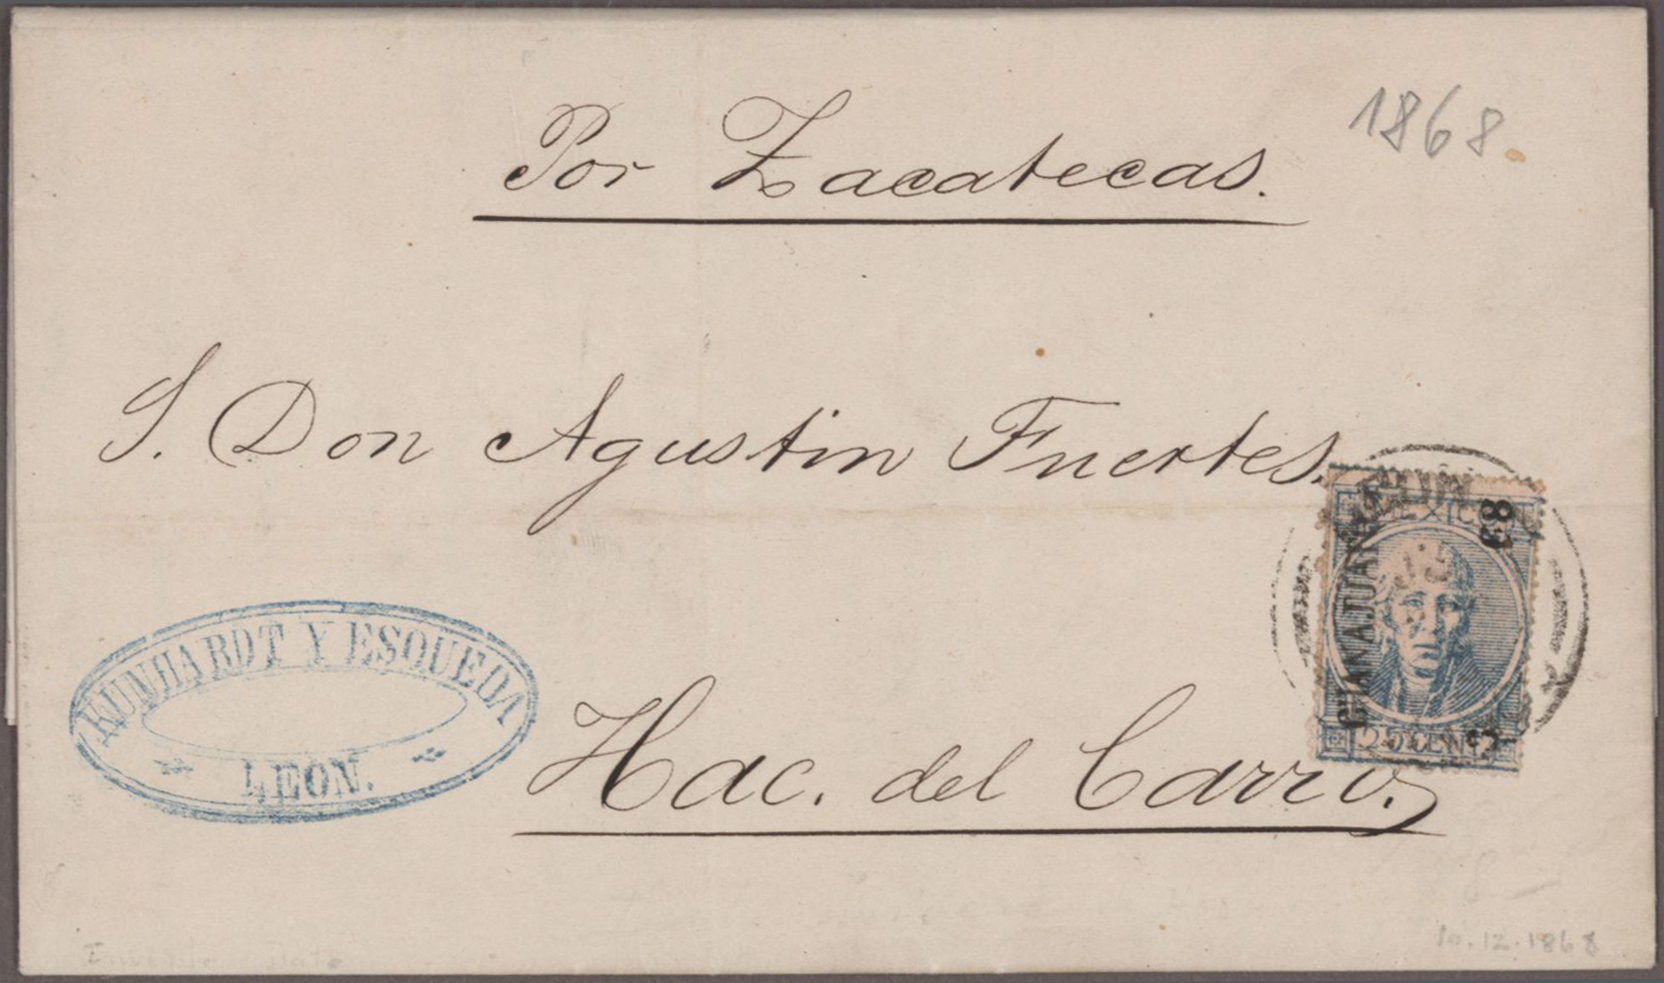 1868.
Por Zacatecas.
S. Don Agustin Fuertes.
MEXICO
83
GUANAJUATO
25 CENT
KUNHARDT Y ESQUEDA
LEON.
Hac. del Carro.
10.12.1868